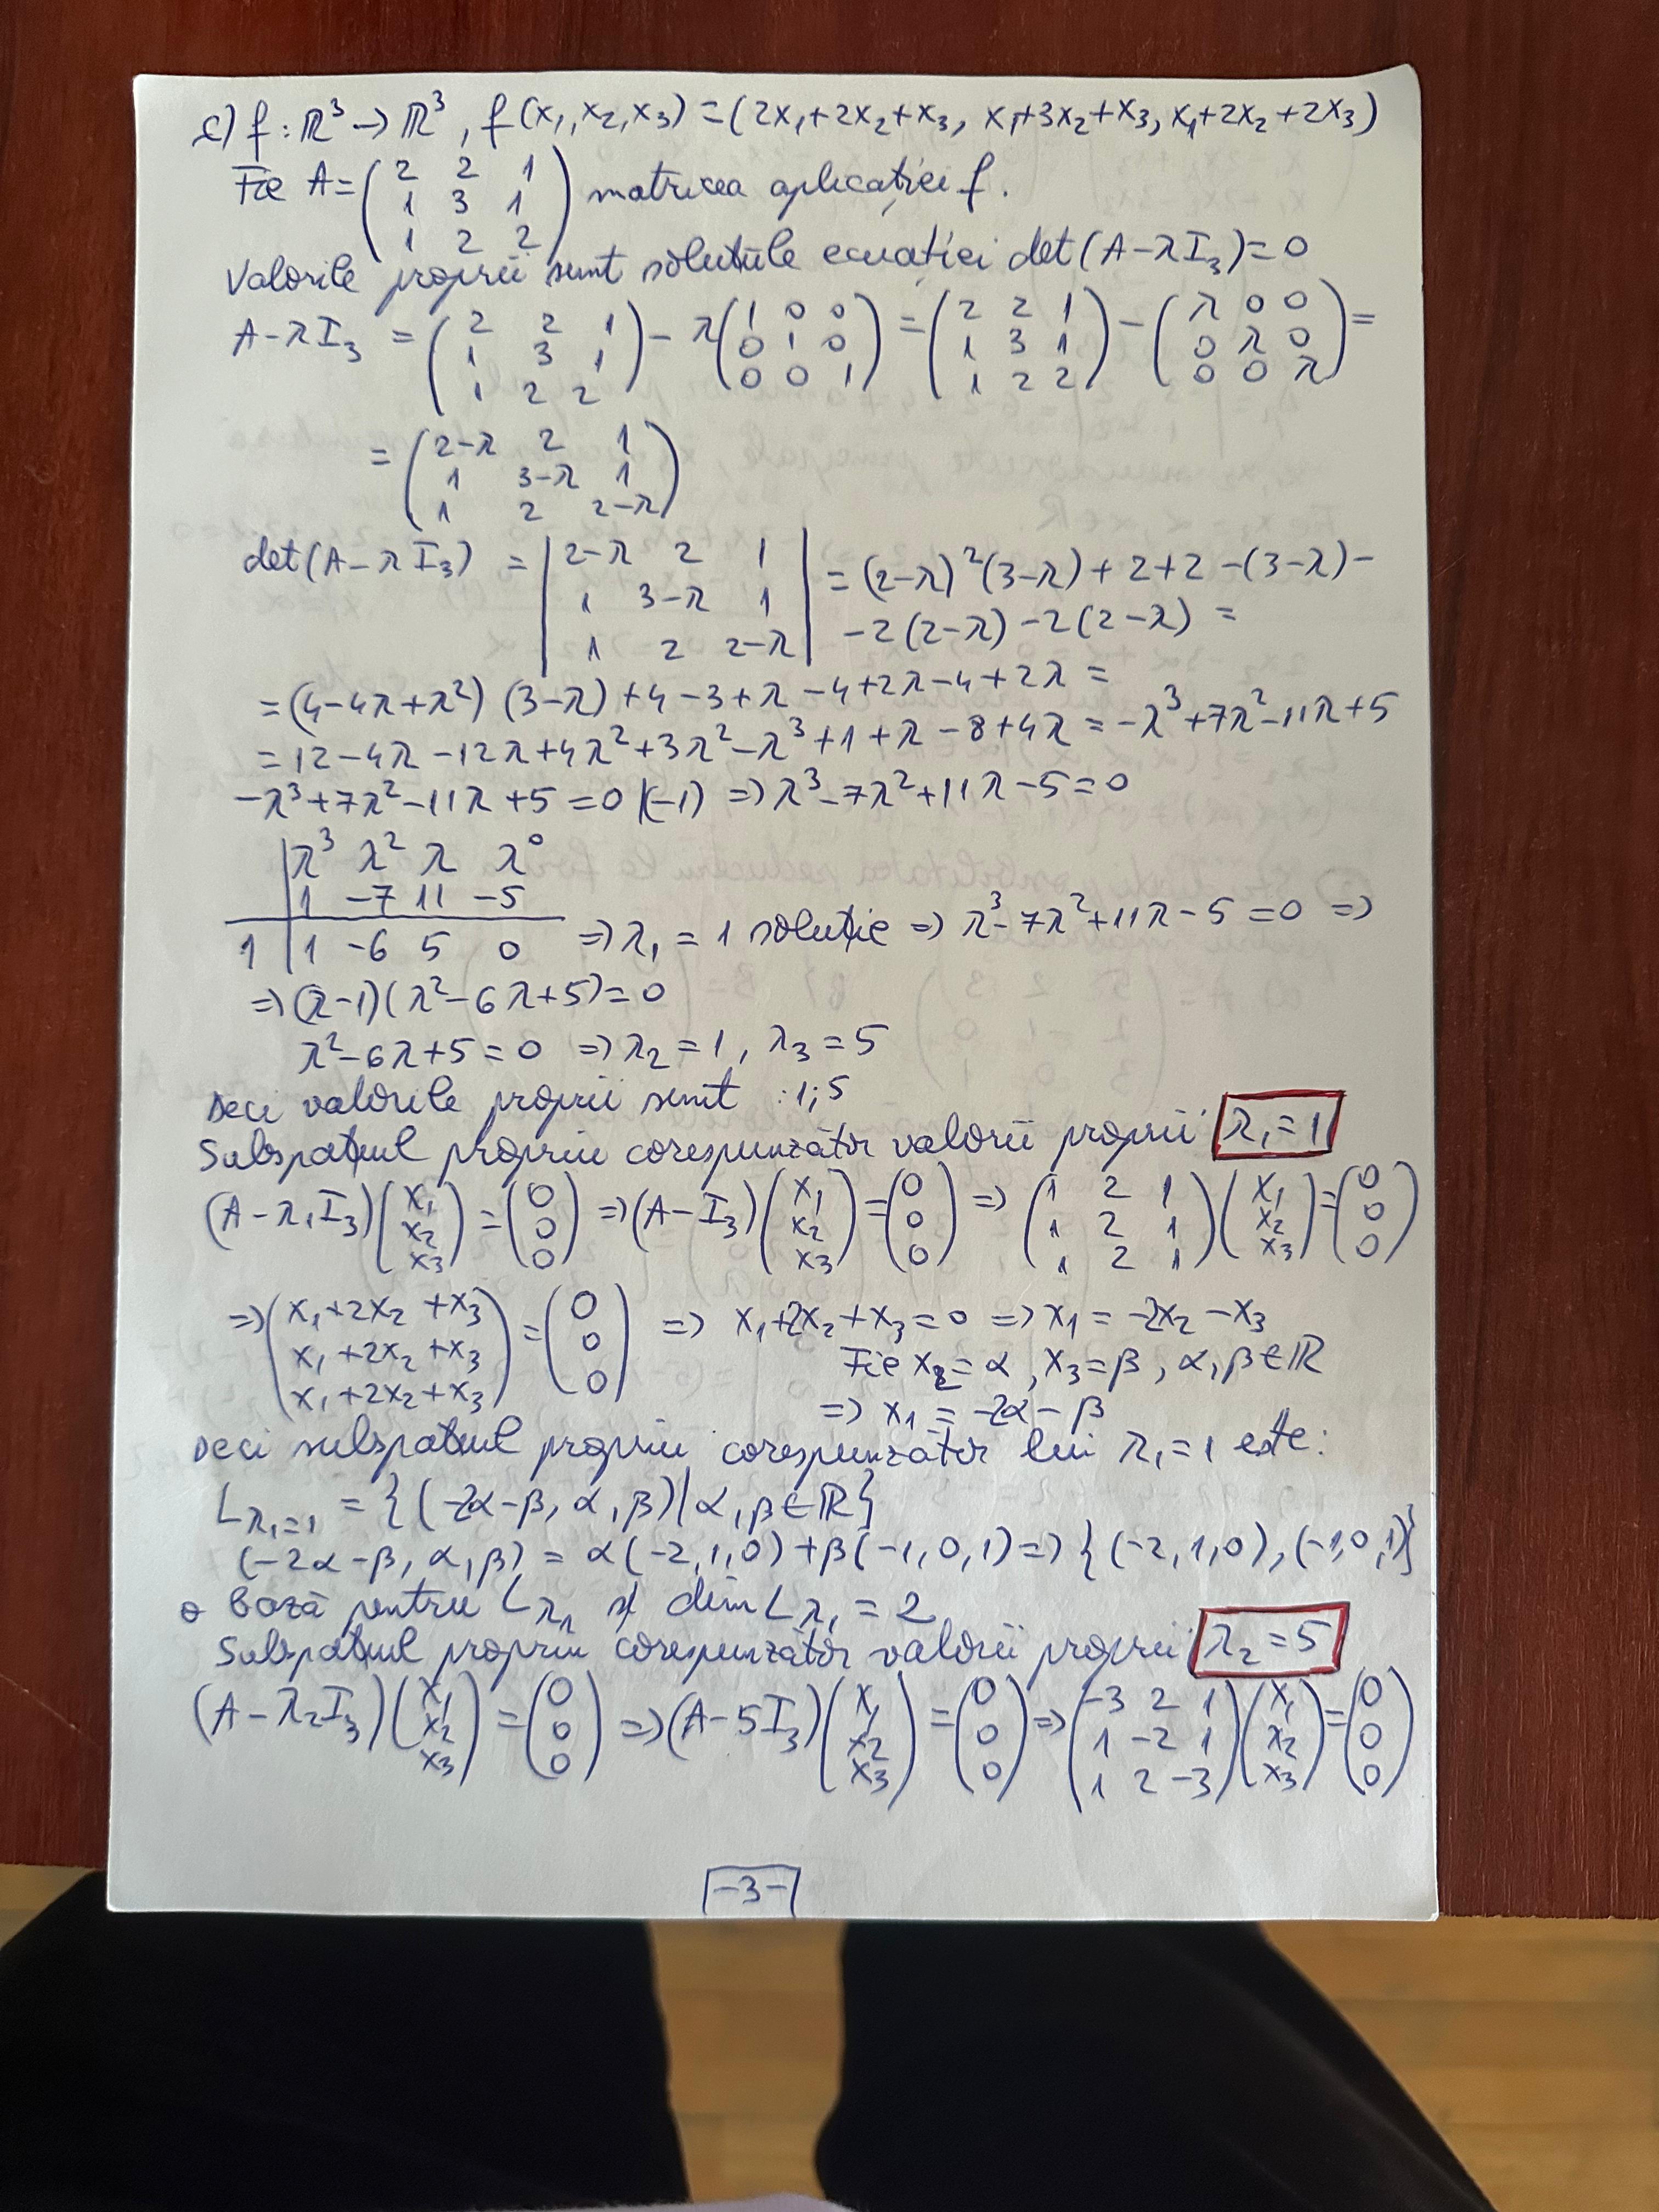 c) f : ℝ³ → ℝ³, f(x₁, x₂, x₃) = (2x₁+2x₂+x₃, x₁+3x₂+x₃, x₁+2x₂+2x₃)
Fie A = (2 2 1; 1 3 1; 1 2 2) matricea aplicației f.
Valorile proprii sunt soluțiile ecuației det(A-λI₃)=0
A-λI₃ = (2 2 1; 1 3 1; 1 2 2) - λ(1 0 0; 0 1 0; 0 0 1) = (2 2 1; 1 3 1; 1 2 2) - (λ 0 0; 0 λ 0; 0 0 λ) =
= (2-λ 2 1; 1 3-λ 1; 1 2 2-λ)
det(A-λI₃) = |2-λ 2 1; 1 3-λ 1; 1 2 2-λ| = (2-λ)²(3-λ)+2+2-(3-λ)-
-2(2-λ)-2(2-λ) =
= (4-4λ+λ²)(3-λ)+4-3+λ-4+2λ-4+2λ =
= 12-4λ-12λ+4λ²+3λ²-λ³+1+λ-8+4λ = -λ³+7λ²-11λ+5
-λ³+7λ²-11λ+5=0 |(-1) ⇒ λ³-7λ²+11λ-5=0
| λ³ λ² λ λ⁰
| 1 -7 11 -5
1 | 1 -6 5 0 ⇒ λ₁=1 soluție ⇒ λ³-7λ²+11λ-5=0 ⇒
⇒ (λ-1)(λ²-6λ+5)=0
λ²-6λ+5=0 ⇒ λ₂=1, λ₃=5
Deci valorile proprii sunt : 1; 5
Subspațiul propriu corespunzător valorii proprii λ₁=1
(A-λ₁I₃)(x₁; x₂; x₃) = (0; 0; 0) ⇒ (A-I₃)(x₁; x₂; x₃) = (0; 0; 0) ⇒ (1 2 1; 1 2 1; 1 2 1)(x₁; x₂; x₃) = (0; 0; 0)
⇒ (x₁+2x₂+x₃; x₁+2x₂+x₃; x₁+2x₂+x₃) = (0; 0; 0) ⇒ x₁+2x₂+x₃=0 ⇒ x₁=-2x₂-x₃
Fie x₂=α, x₃=β, α,β∈ℝ
⇒ x₁=-2α-β
Deci subspațiul propriu corespunzător lui λ₁=1 este:
L_{λ₁=1} = {(-2α-β, α, β) | α,β∈ℝ}
(-2α-β, α, β) = α(-2,1,0)+β(-1,0,1) ⇒ {(-2,1,0), (-1,0,1)}
o bază pentru L_{λ₁} și dim L_{λ₁} = 2
Subspațiul propriu corespunzător valorii proprii λ₂=5
(A-λ₂I₃)(x₁; x₂; x₃) = (0; 0; 0) ⇒ (A-5I₃)(x₁; x₂; x₃) = (0; 0; 0) ⇒ (-3 2 1; 1 -2 1; 1 2 -3)(x₁; x₂; x₃) = (0; 0; 0)
-3-